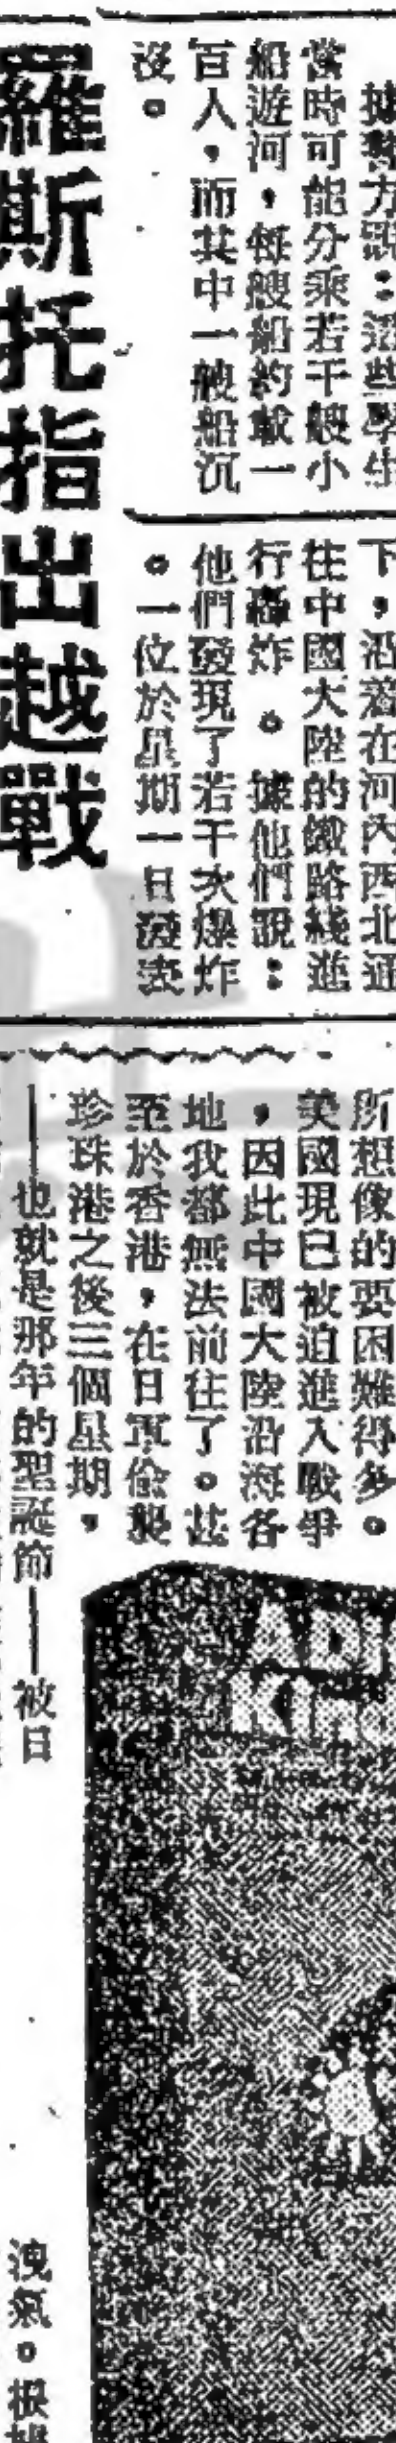 據警方說：這些學生
當時可能分乘若干艘小
船遊河，每艘船約載一
百人，而其中一艘船沉
沒。
羅斯托指出越戰
下，沿着在河內西北通
往中國大陸的鐵路綫進
行轟炸。據他們說：
他們發現了若干次爆炸
。一位於星期一日發表
所想像的要困難得多。
美國現已被迫進入戰爭
，因此中國大陸沿海各
地我都無法前往了。甚
至於香港，在日軍偷襲
珍珠港之後三個星期，
——也就是那年的聖誕節——被日
ADI
KING
洩氣。根據